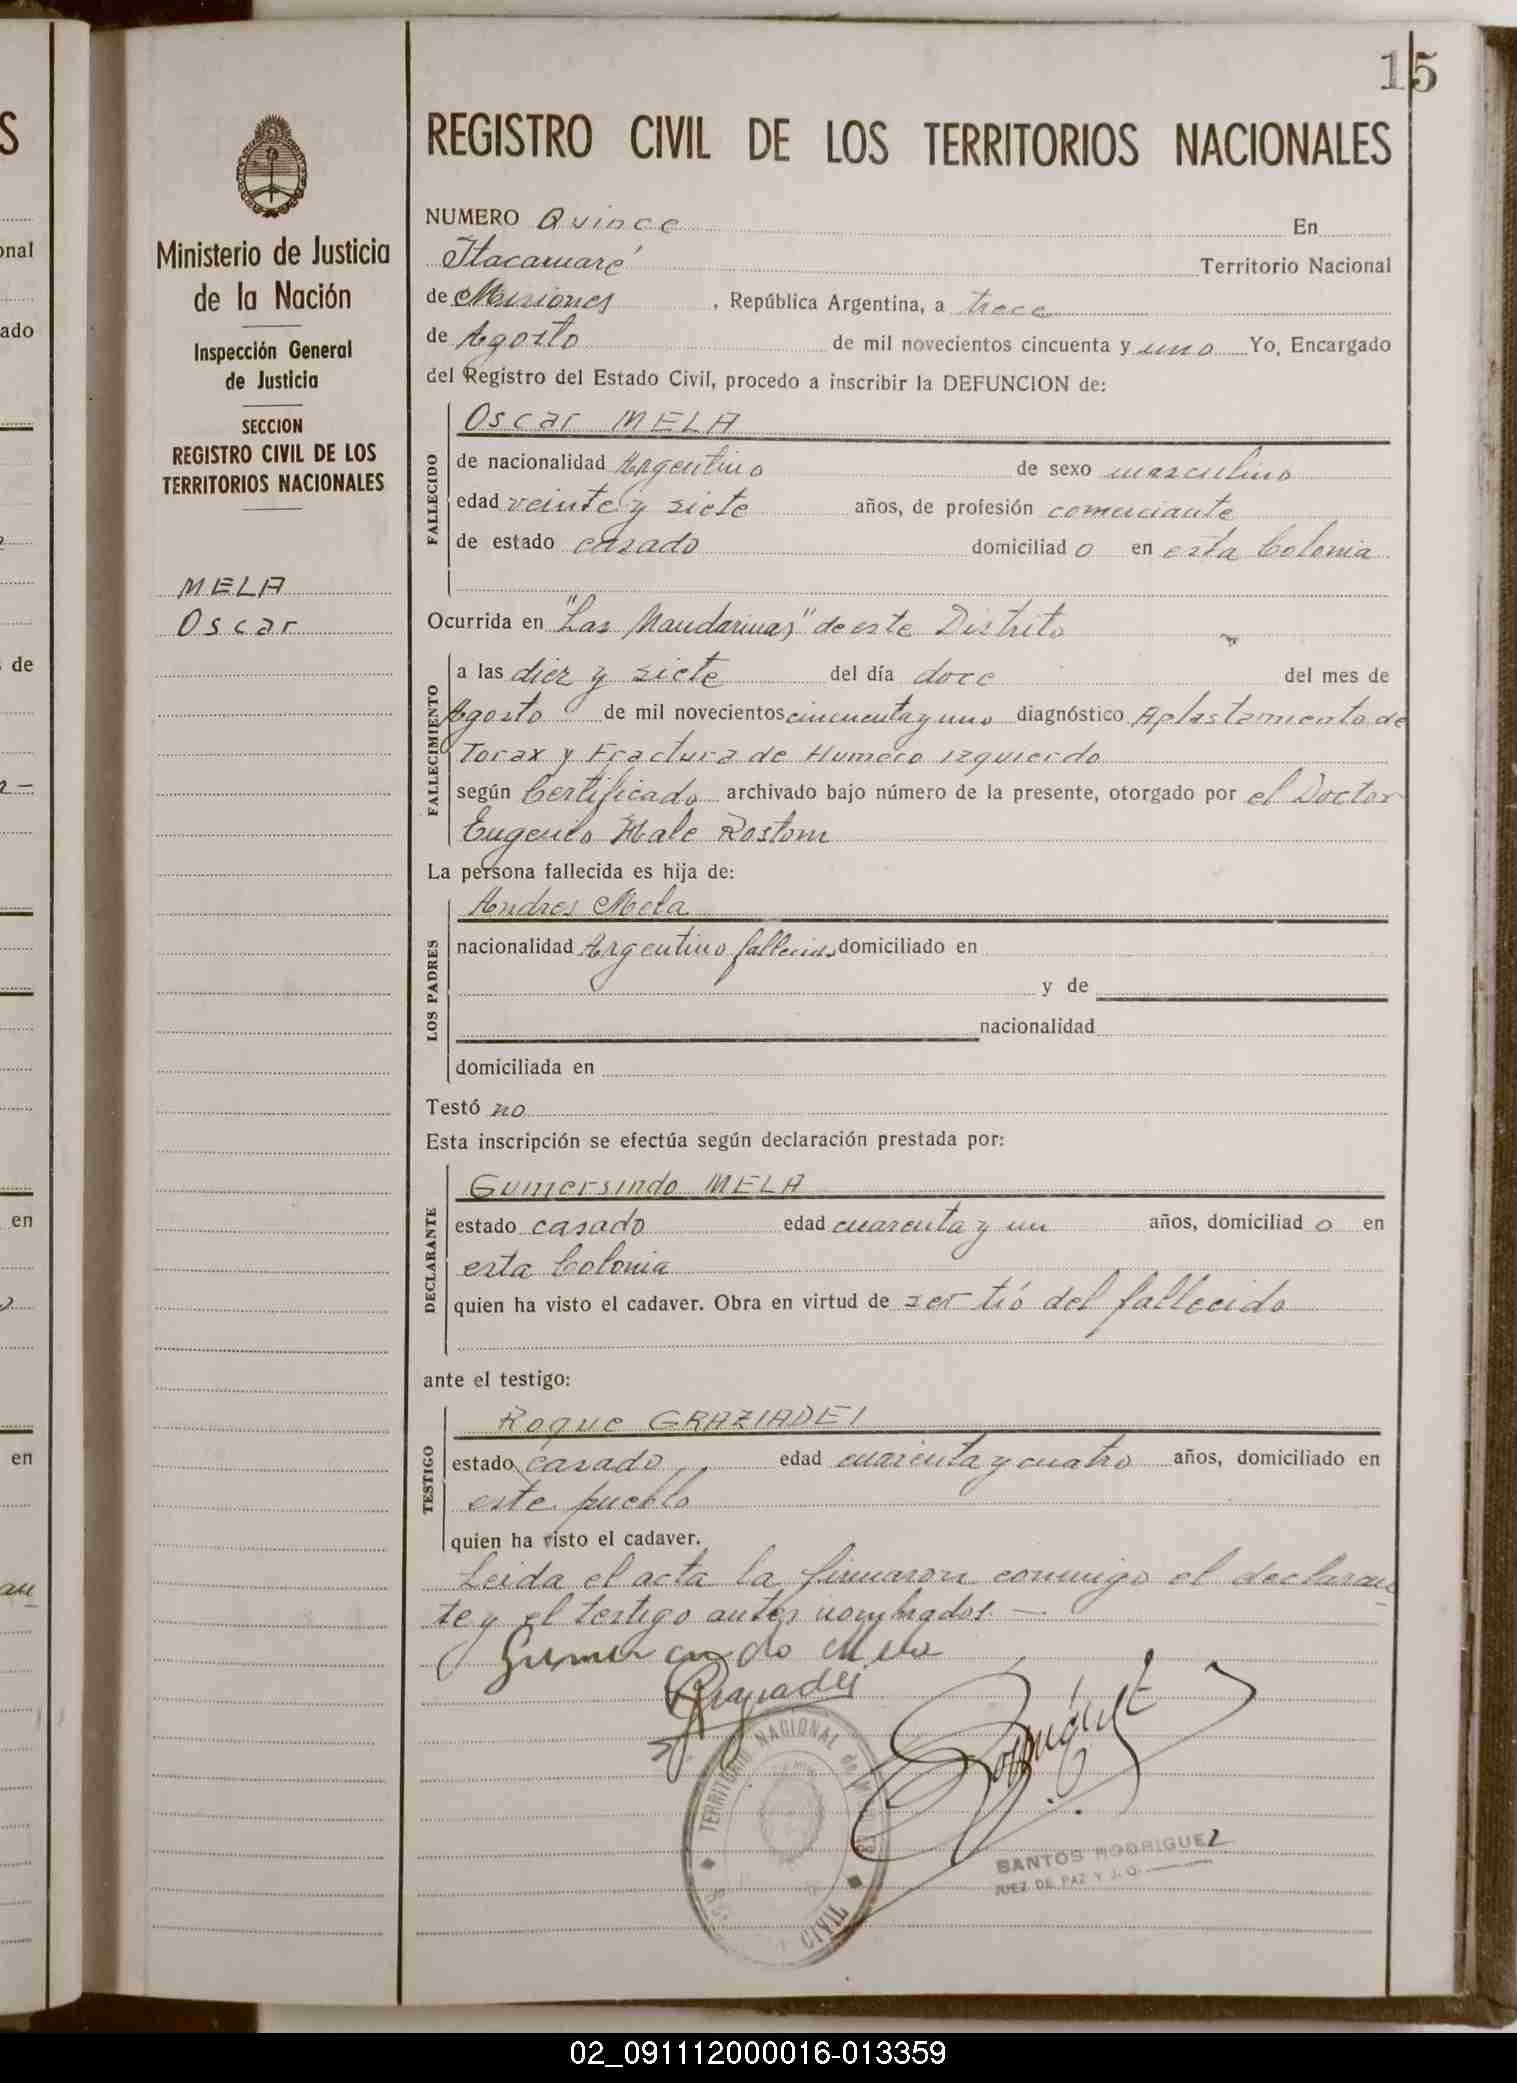 15
REGISTRO CIVIL DE LOS TERRITORIOS NACIONALES
Ministerio de Justicia
de la Nación
Inspección General
de Justicia
SECCION
REGISTRO CIVIL DE LOS
TERRITORIOS NACIONALES
MELA
Oscar
NUMERO Quince En
Itacaruaré Territorio Nacional
de Misiones, República Argentina, a trece
de Agosto de mil novecientos cincuenta y uno Yo, Encargado
del Registro del Estado Civil, procedo a inscribir la DEFUNCION de:
FALLECIDO
Oscar MELA
de nacionalidad Argentino de sexo masculino
edad veinte y siete años, de profesión comerciante
de estado casado domiciliado en esta Colonia
Ocurrida en "Las Mandarinas" de este Distrito
FALLECIMIENTO
a las diez y siete del día doce del mes de
Agosto de mil novecientos cincuenta y uno diagnóstico Aplastamiento de
Torax y Fractura de Humero izquierdo
según Certificado archivado bajo número de la presente, otorgado por el Doctor
Eugenio Rostom
La persona fallecida es hija de:
LOS PADRES
Andres Mela
nacionalidad Argentino fallecido domiciliado en
y de
nacionalidad
domiciliada en
Testó no
Esta inscripción se efectúa según declaración prestada por:
DECLARANTE
Gumersindo MELA
estado casado edad cuarenta y un años, domiciliado en
esta Colonia
quien ha visto el cadaver. Obra en virtud de ser tió del fallecido
ante el testigo:
TESTIGO
Roque GRAZIADEI
estado casado edad cuarenta y cuatro años, domiciliado en
este pueblo
quien ha visto el cadaver.
Leida el acta la firmaron conmigo el declaran
te y el testigo antes nombrados.—
Gumercindo Mela
TERRITORIO NACIONAL de
CIVIL
SANTOS RODRIGUEZ
JUEZ DE PAZ Y J. O.
02_091112000016-013359